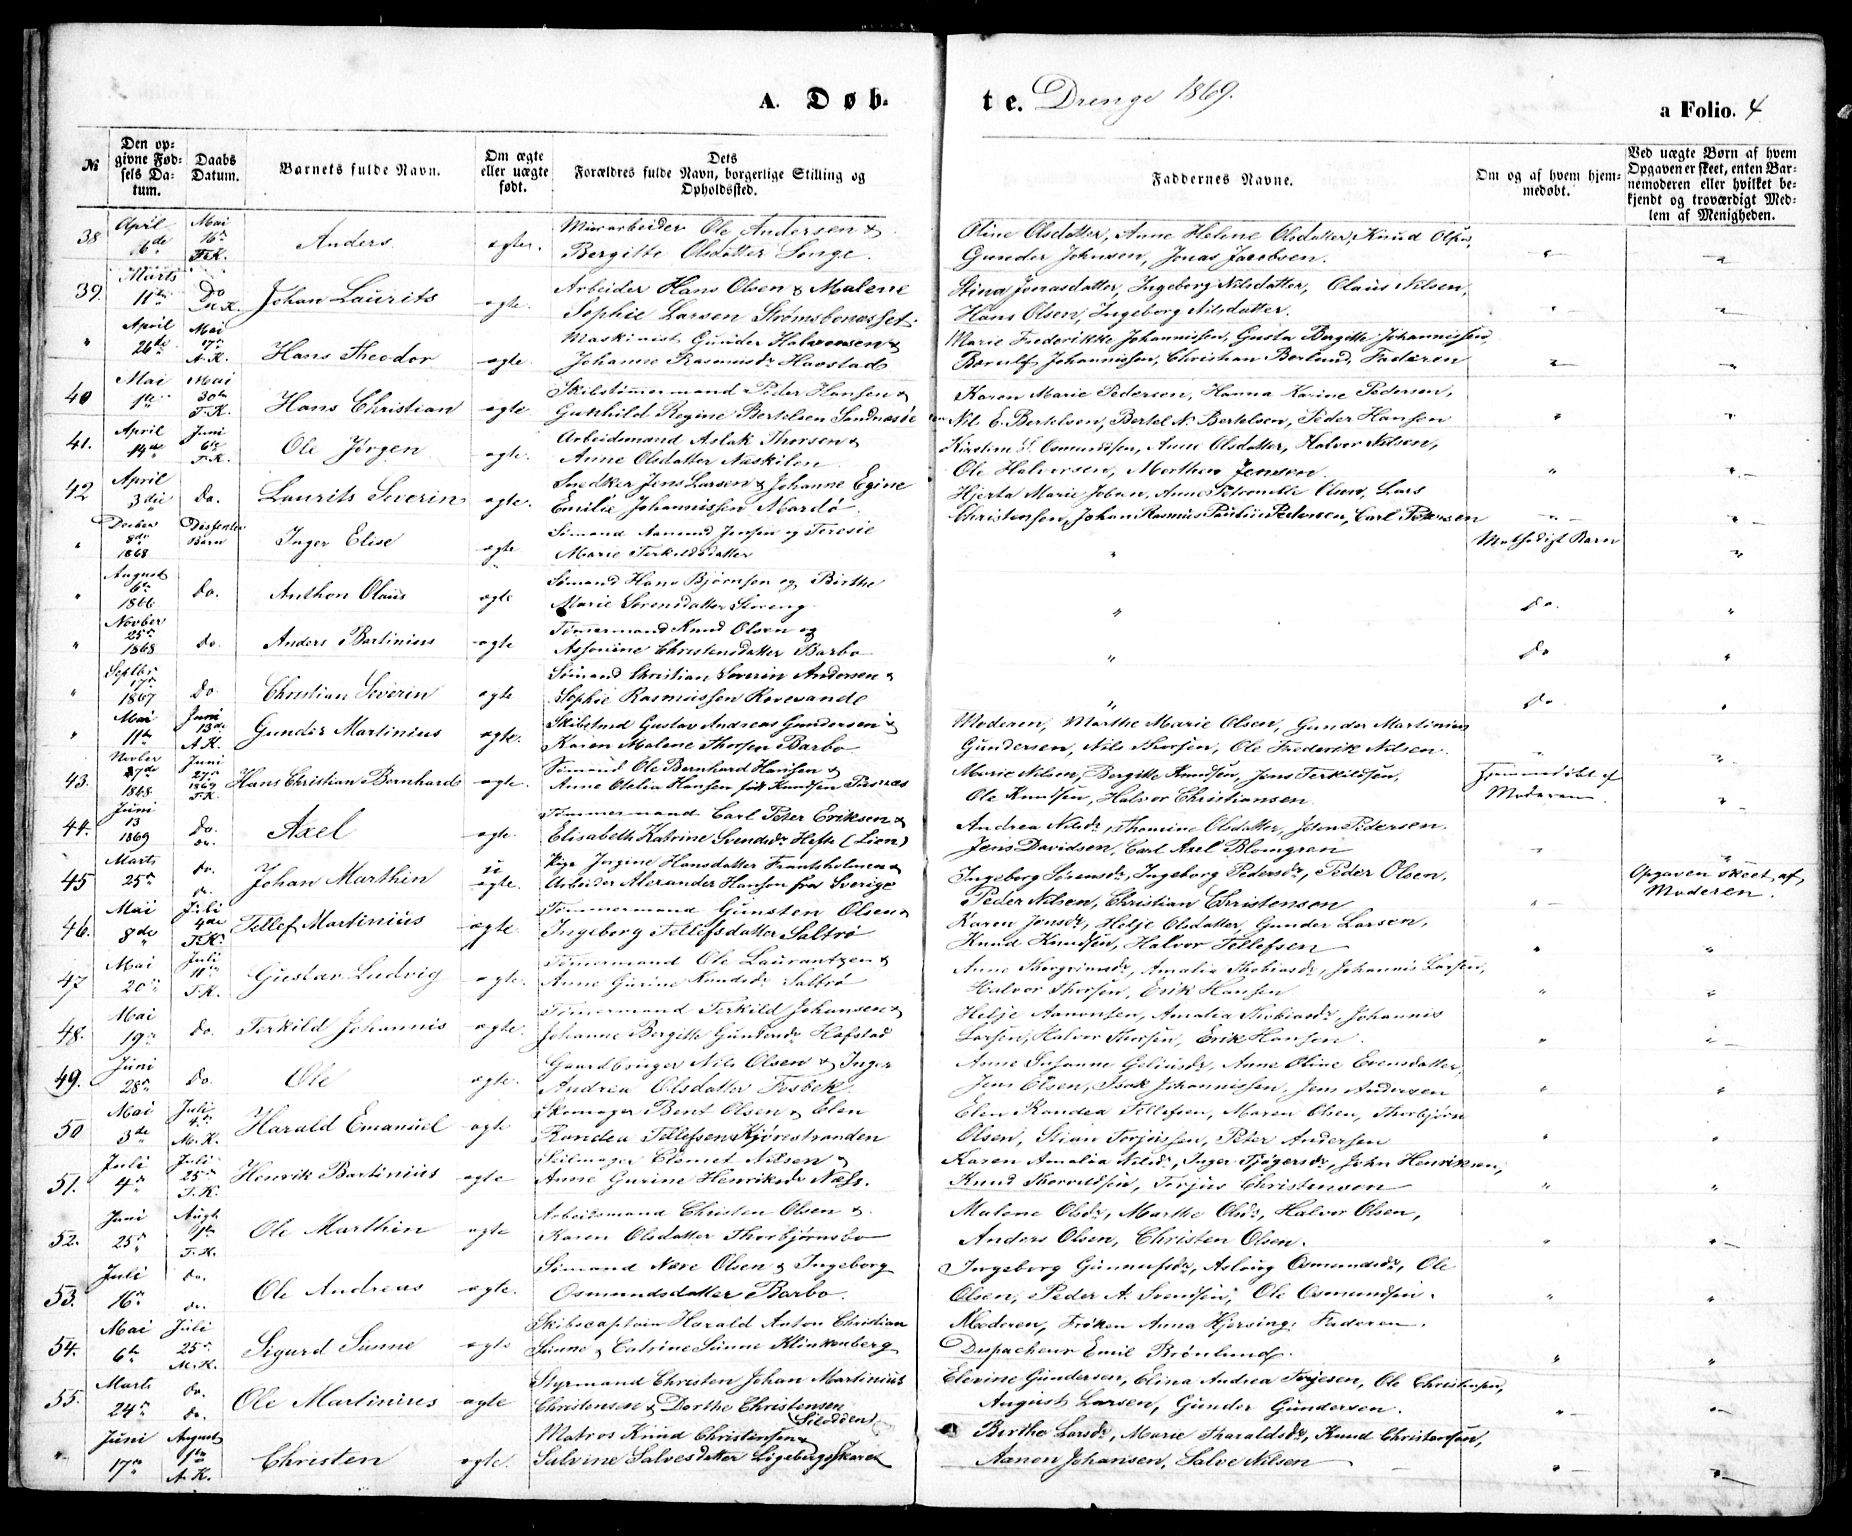 A. Døb-
te. Drenge 1869.
a Folio. 4
№ | Den opgivne Fødsels Datum. | Daabs Datum. | Barnets fulde Navn. | Om ægte eller uægte født. | Dets Forældres fulde Navn, borgerlige Stilling og Opholdssted. | Faddernes Navne. | Om og af hvem hjemmedøbt. | Ved uægte Børn af hvem Opgaven er skeet, enten Barnemoderen eller hvilket bekjendt og troværdigt Medlem af Menigheden.
38 April 16de Mai 16de Anders ægte. Ole Andersen & Oline Olsdatter, Anne Helene Olsdatter, Knud
Bergitte Olsdatter Songe. Gunder Johnsen, Jonas Jacobsen.
39. Marts 11te Do Johan Laurits ægte. Arbeider Hans Olsen & Malene Stina Jonasdatter, Ingeborg Nilsdatter, Olaus Nilsen,
Sophie Larsen Strømsbonesset. Hans Olsen, Ingeborg Nilsdatter.
" April 26de Mai 17de A.K. Hans Theodor ægte. Maskinist Gunder Halvorsen & Marie Frederikke Johannisen, Gusta Bergitte Johannissen
Johanne Rasmusdr Havstad Johannissen, Christian Berlund, Faderen
40 Mai 1te Mai 30te T.K. Hans Christian ægte. Skibstømmermand Peder Hansen & Karen Marie Pedersen, Hanna Karine Pedersen,
Gunhild Regine Bertelsen Sandnesøe Nils E. Bertelsen, Bertel N. Bertelsen, Peder Hansen
41. April 14de Juni 6te T.K. Ole Jørgen ægte. Arbeidsmand Aslak Thorsen & Kirstine Osmundsen, Anne Olsdatter, Halvor Nilsen,
Anne Olsdatter Naskilen Ole Halvorsen, Morthen Jensen
42 April 3die Do. Laurits Severin ægte. Snedker Jens Larsen & Johanne Egine Hjerta Marie Olsen, Lars
Emilie Johannissen Mardø. Christensen, Johan Rasmus Pedersen, Carl Petersen
" Decber 8de 1868 Dissenter Barn Inger Elise ægte. Sømand Aamund Jensen og Teresie Methodigt Barn
Marie Terkildsdatter
" August 6te 1866 Do. Anthon Olaus ægte Sømand Hans Bjørnsen og Birthe Do.
Marie Sørensdatter Storeng.
" Novber 25de 1868 Do. Anders Bertinius ægte Tømmermand Knud Olsen og Do
Christensdatter Barbo
" Septbr 17de 1867 Do Christian Severin ægte Sømand Christian Severin Andersen & Do
Sophie Rasmussen Revesande
" Mai 11te Juni 13de A.K. Gunder Martinius ægte. Skibstmd Gustav Andreas Gundersen & Moderen, Marthe Marie Olsen, Gunder Martinius
Karen Malene Thorsen Barbo Gundersen, Nils Thorsen, Ole Frederik Nilsen.
43. Novber 27de 1868 Juni 27de 1869 T.K. Hans Christian Bernhard ægte. Sømand Ole Bernhard Hansen & Marie Nilsen, Bergitte Knudsen, Jens Terkildsen, Hjemmedøbt af
Anne Otelia Hansen fød Knudsen Ole Knudsen, Halvor Christiansen. Moderen.
44. Juni 13 1869 Do. Axel ægte. Tømmermand Carl Peter Eriksen & Andrea Nilsdr, Thomine Olsdatter, Pedersen.
Elisabeth Katrine Svendsdr Hefte (Lien) Jens Davidsen, Carl Axel Blomgren
45 Marts 25de do. Johan Marthin uægte. Pige Jrgine Hansdatter Frantsholmen & Ingeborg Sørensdr, Ingeborg Pedersdr, Peder Olsen, Opgaven skeet af
Arbeider Alexander Hansen fra Sverige Peder Nilsen, Christian Christensen Moderen.
46. Mai 8de Juli 4de T.K. Tellef Martinius ægte. Tømmermand Gunsten Olsen & Karen Jensdr, Helje Olsdatter, Gunder Larsen,
Ingeborg Tellefsdatter Saltrø Knud Knudsen, Halvor Tellefsen
47 Mai 20de Juli 11te T.K. Gustav Ludvig ægte. Tømmermand Ole Laurantzen & Anne Thorgrimsdr, Amalia Thobiasdr, Johannis Larsen,
Anne Gurine Knudsdr Saltrø Halvor Thorsen, Erik Hansen
48. Mai 19de Do. Terkild Johannis ægte. Tømmermand Terkild Johansen & Helje Aanonsen, Amalia Thobiasdr, Johannis
Johanne Bergitte Gundersdr Hafstad Larsen, Halvor Thorsen, Erik Hansen.
49. Juni 28de Do. Ole ægte. Gaardbruger Nils Olsen & Inger Anne Susanne Geliusdr, Anne Oline Evensdatter,
Andrea Olsdatter Fosbek. Jens Olsen, Isak Johannissen, Jens Andersen
50 Mai 3de Juli 4de M.K. Harald Emanuel ægte Skomager Bent Olsen & Elen Elen Randea Tellefsen, Maren Olsen, Thorbjørn
Randea Tellefsen Kjørestranden Olsen, Stian Torjussen, Peter Andersen
51. Juli 4de Juli 25de T.K. Henrik Bertinius ægte Seilmager Clemet Nilsen & Karen Amalia Nilsdr, Inger Tjøgersdr, John Henriksen,
Anne Gurine Henriksdr Næss. Knud Thorvildsen, Torjus Christensen
52. Juni 25de Augst 1ste T.K. Ole Marthin ægte Arbeidsmand Christen Olsen & Malene Olsdr, Marthe Olsdr, Halvor Olsen,
Karen Olsdatter Thorbjørnsbo Anders Olsen, Christen Olsen.
53. Juli 16de do. Ole Andreas ægte. Sømand Nære Olsen & Ingeborg Ingeborg Gunnufsdr, Aslaug Osmundsdr, Ole
Osmundsdatter Barbo. Olsen, Peder A. Svendsen, Ole Osmundsen.
54. Mai 6te Juli 25de M.K. Sigurd Sunne ægte Skibscaptain Harald Anton Christian Moderen, Frøken Anna Hjersing, Faderen.
Sunne & Catrine Sunne Klinkenberg Dispacheur Emil Brønlund.
55. Marts 24de do. Ole Martinius ægte Styrmand Christen Johan Martinius Elevine Gundersen, Elina Andrea Torjesen, Ole Christensen,
Christensen & Dorthe Christensen August Larsen, Gunder Gundersen.
(Silodden)
" Juni 17de August 1ste A.K. Christen ægte. Matros Knud Christensen & Birthe Larsdr, Marie Tharaldsdr, Knud Christensen,
Salvine Salvesdatter Ligebergsskaret Aanon Johansen, Salve Nilsen